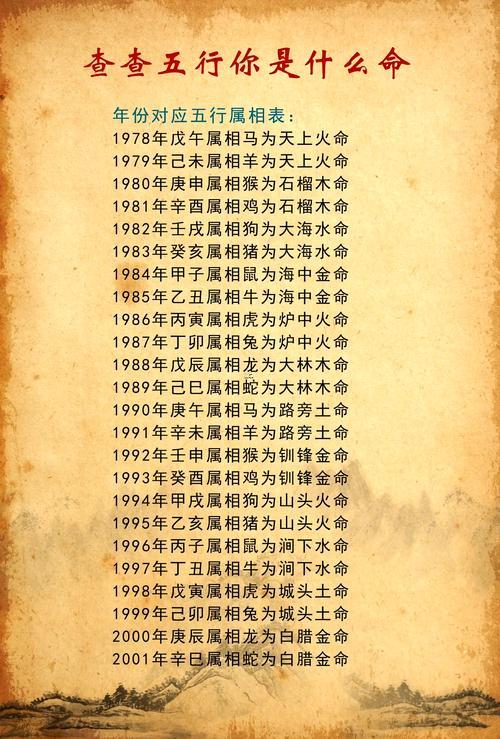 查查五行你是什么命
年份对应五行属相表：
1978年戊午属相马为天上火命
1979年己未属相羊为天上火命
1980年庚申属相猴为石榴木命
1981年辛酉属相鸡为石榴木命
1982年壬戌属相狗为大海水命
1983年癸亥属相猪为大海水命
1984年甲子属相鼠为海中金命
1985年乙丑属相牛为海中金命
1986年丙寅属相虎为炉中火命
1987年丁卯属相兔为炉中火命
1988年戊辰属相龙为大林木命
1989年己巳属相蛇为大林木命
1990年庚午属相马为路旁土命
1991年辛未属相羊为路旁土命
1992年壬申属相猴为钏锋金命
1993年癸酉属相鸡为钏锋金命
1994年甲戌属相狗为山头火命
1995年乙亥属相猪为山头火命
1996年丙子属相鼠为涧下水命
1997年丁丑属相牛为涧下水命
1998年戊寅属相虎为城头土命
1999年己卯属相兔为城头土命
2000年庚辰属相龙为白腊金命
2001年辛巳属相蛇为白腊金命